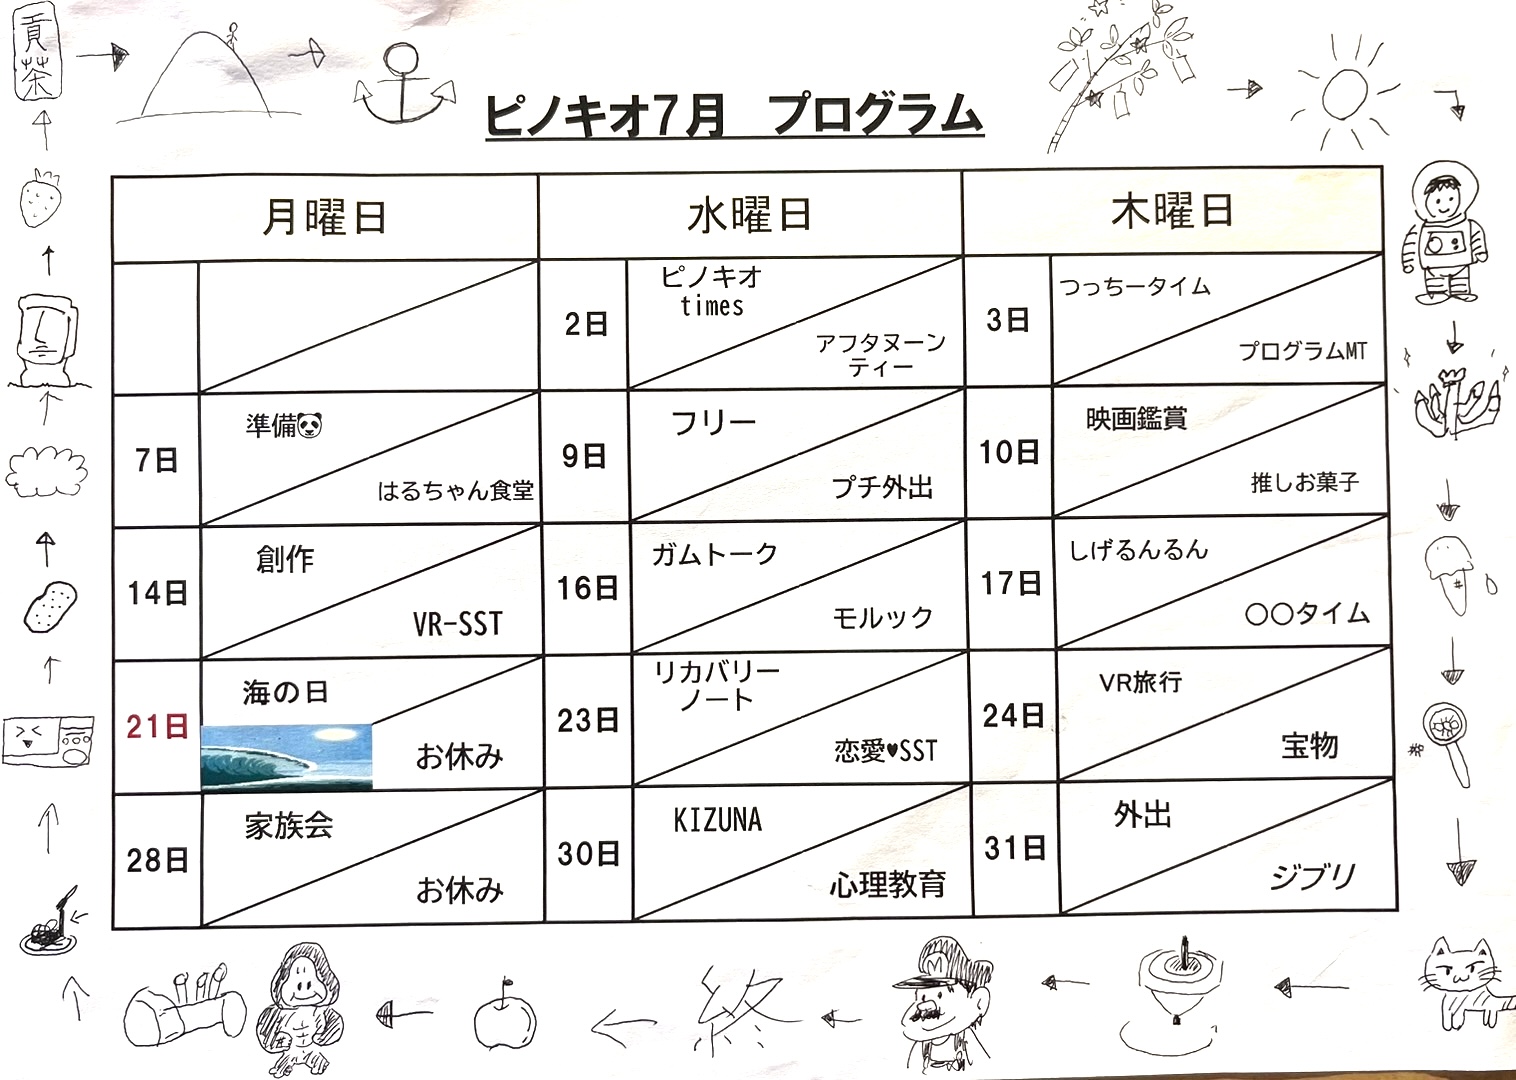 貢茶
ピノキオ7月 プログラム
月曜日
水曜日
木曜日
2日
ピノキオ
times
アフタヌーン
ティー
3日
つっちータイム
プログラムMT
7日
準備🐼
はるちゃん食堂
9日
フリー
プチ外出
10日
映画鑑賞
推しお菓子
14日
創作
VR-SST
16日
ガムトーク
モルック
17日
しげるんるん
〇〇タイム
21日
海の日
お休み
23日
リカバリー
ノート
恋愛♥SST
24日
VR旅行
宝物
28日
家族会
お休み
30日
KIZUNA
心理教育
31日
外出
ジブリ
終
M